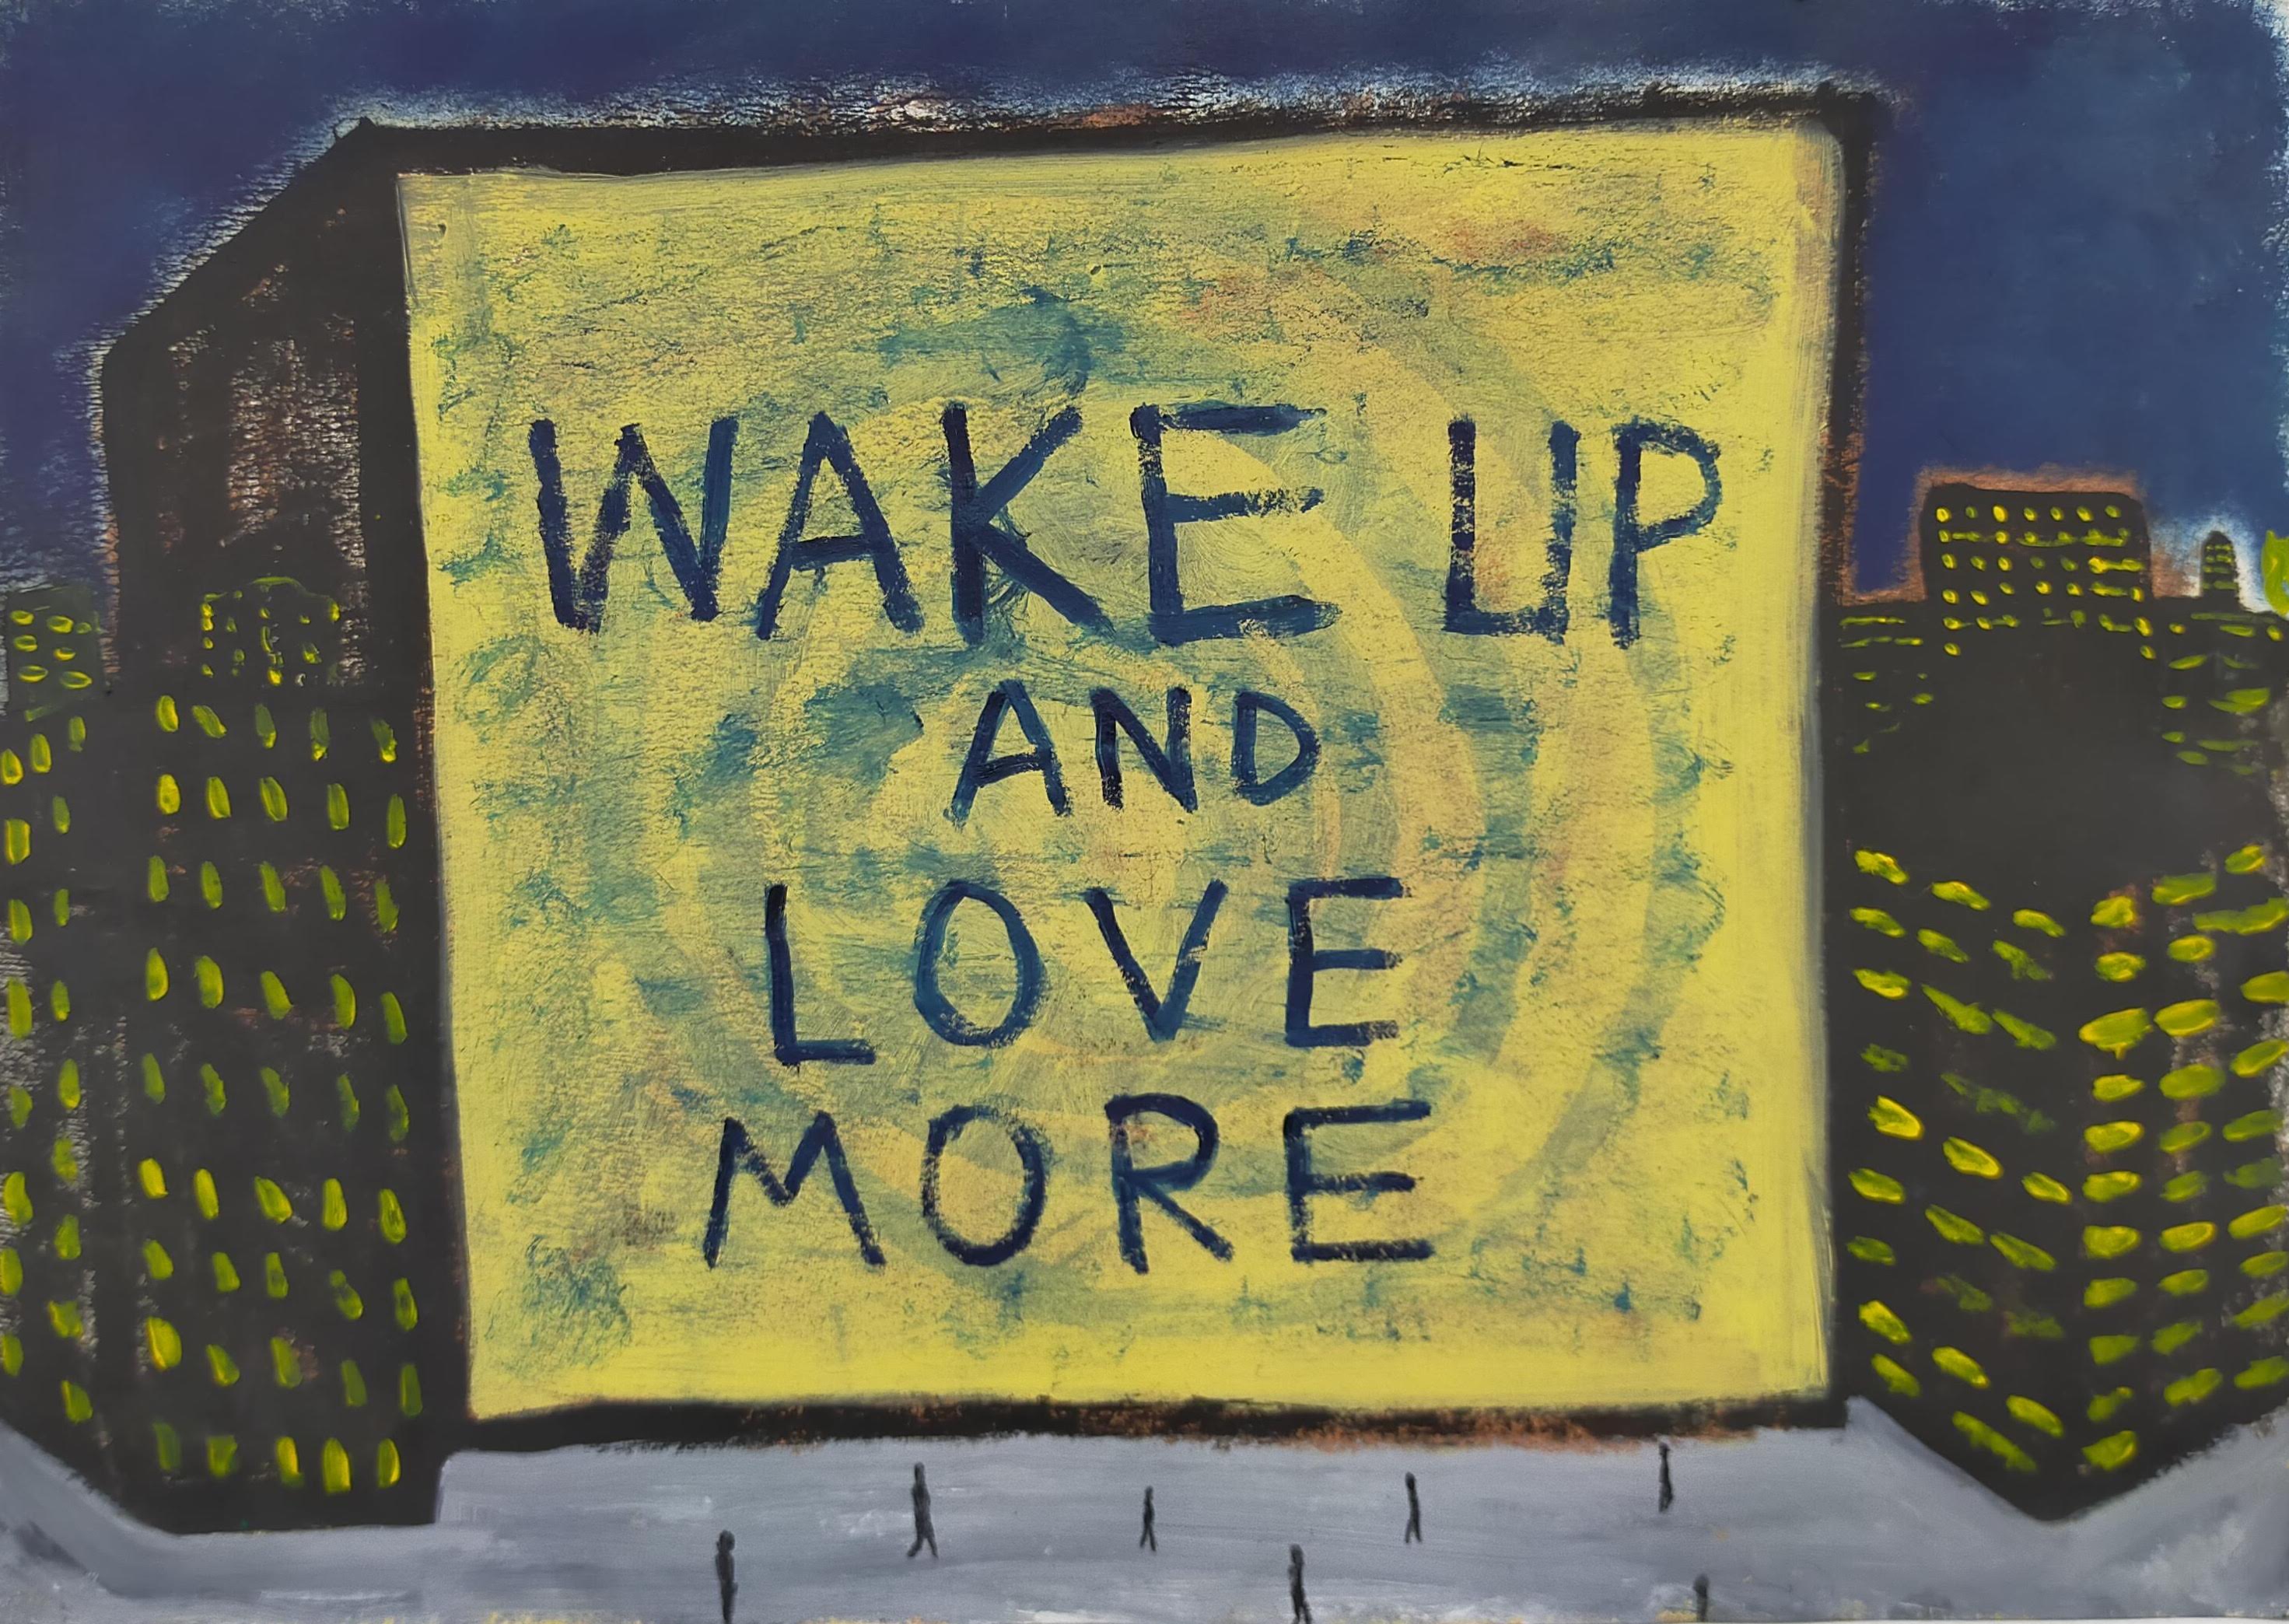 WAKE UP
AND
LOVE
MORE